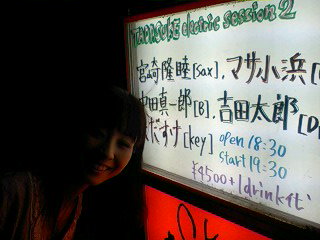 electric session 2
宮崎隆睦[sax],マサ小浜[
中田真一郎[B],吉田太郎[D
だすけ[key]
open 18:30
start 19:30
¥4500+1drink代